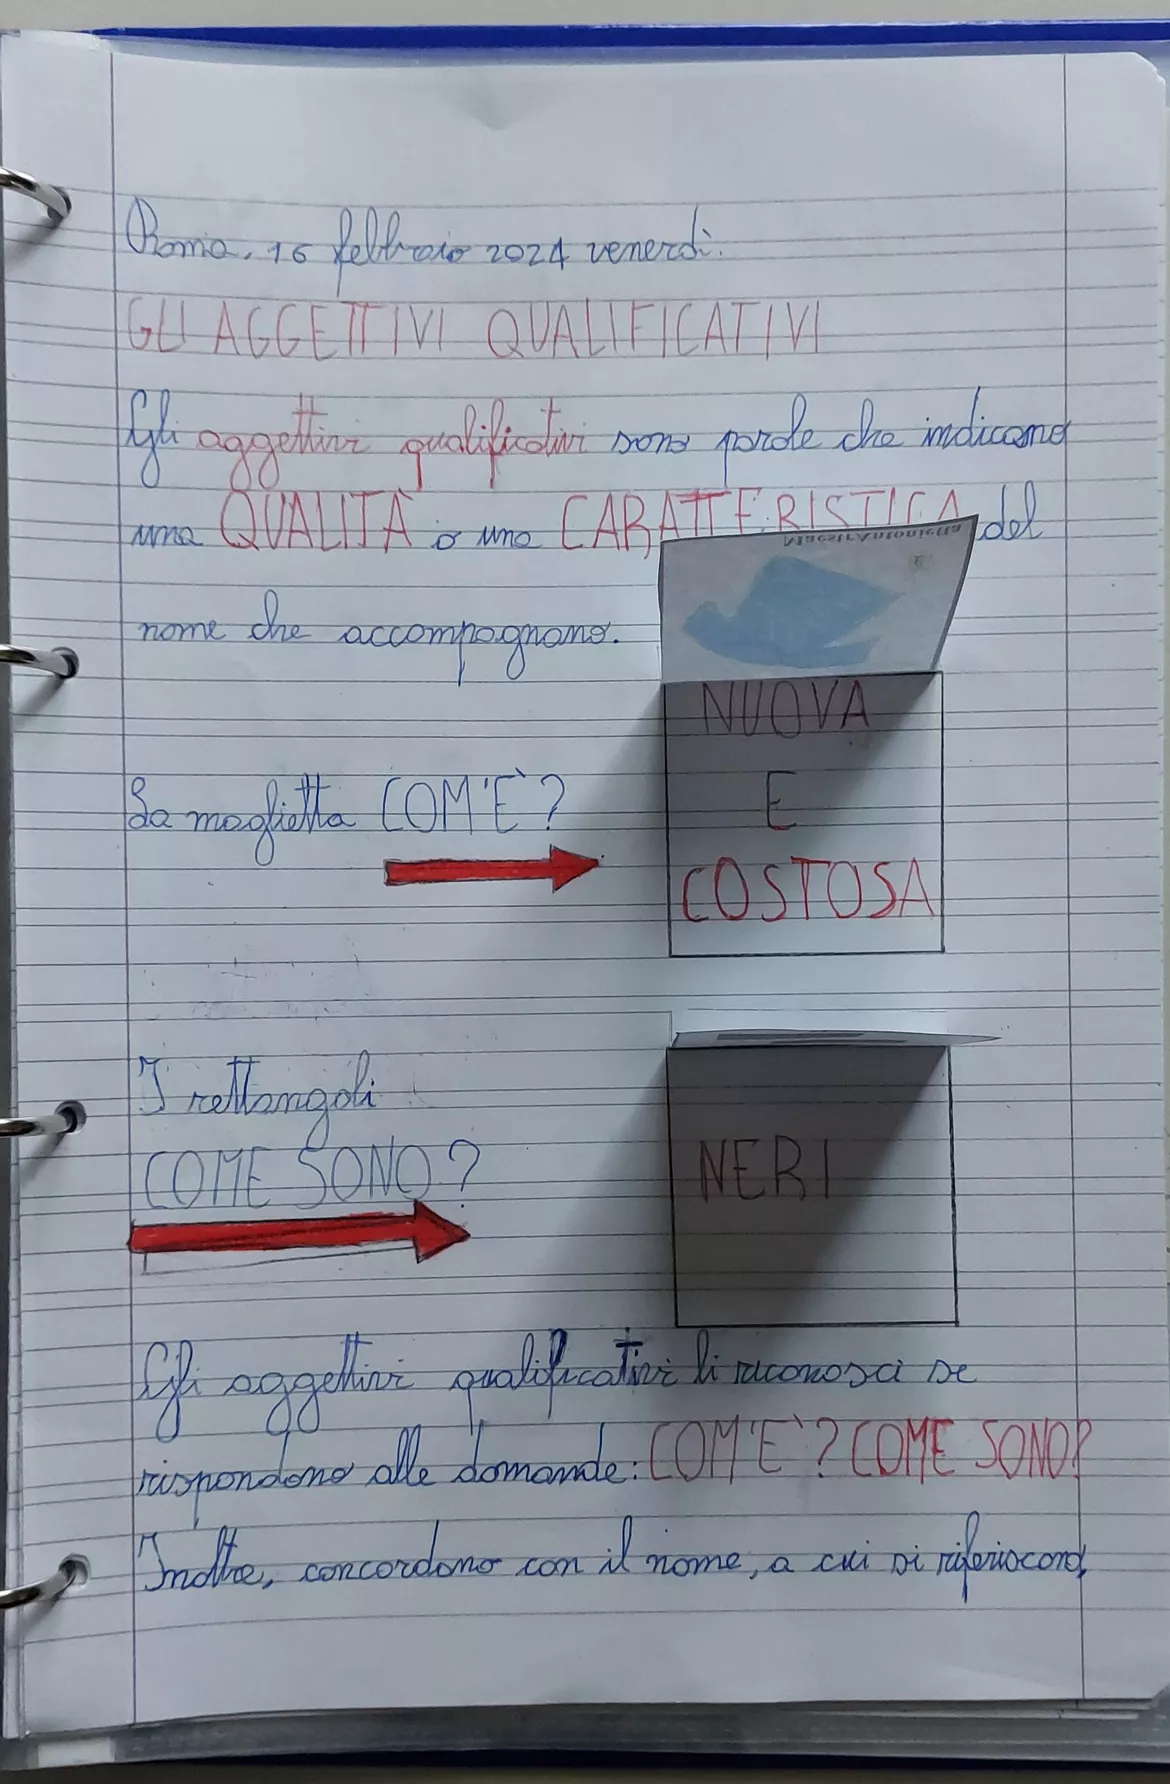 Roma, 16 febbraio 2024 venerdì.
GLI AGGETTIVI QUALIFICATIVI
Gli aggettivi qualificativi sono parole che indicano
una QUALITÀ o una CARATTERISTICA del
MaestrAntonietta
nome che accompagnano.
NUOVA
E
COSTOSA
La maglietta COM'È?
I rettangoli
COME SONO?
NERI
Gli aggettivi qualificativi li riconosci se
rispondono alle domande: COM'È? COME SONO?
Inoltre, concordano con il nome, a cui si riferiscono,